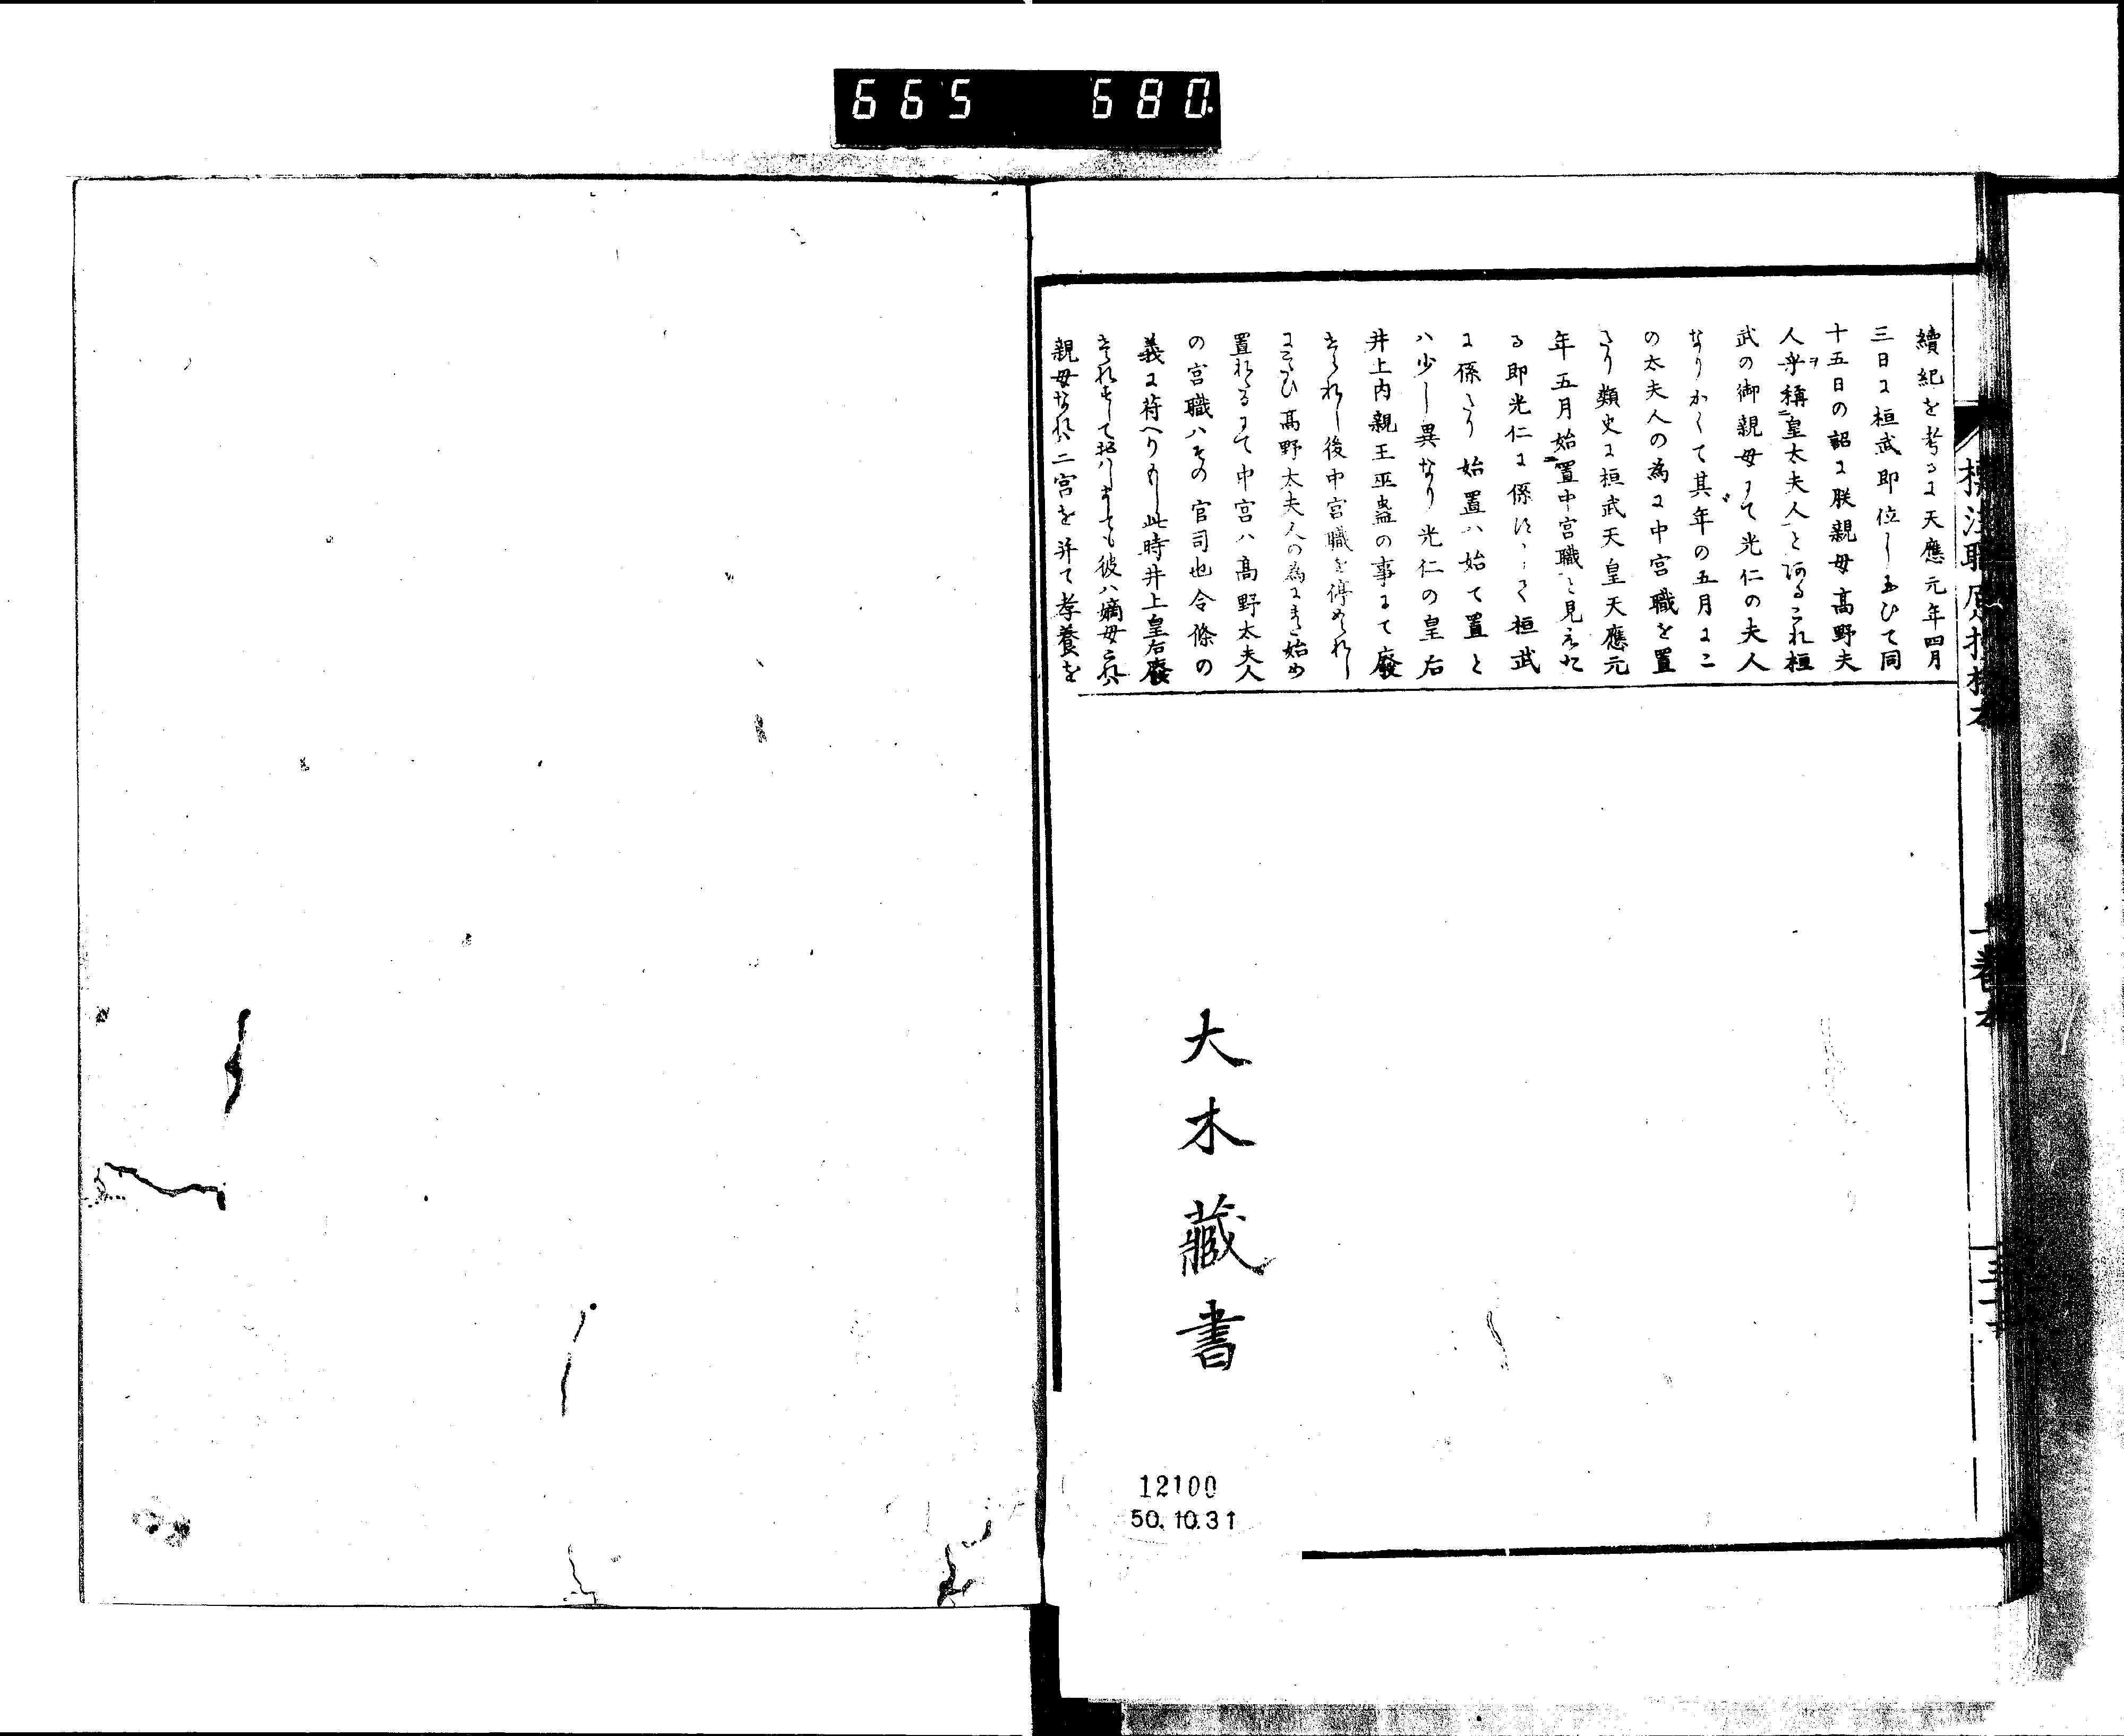 665 680
續紀を考るに天應元年四月
三日に桓武即位し玉ひて同
十五日の詔に朕親母高野夫
人乎稱皇太夫人とあるこれ桓
武の御親母にて光仁の夫人
なりかくて其年の五月にこ
の太夫人の為に中宮職を置
たり類史に桓武天皇天應元
年五月始置中宮職と見えた
る即光仁に係 桓武
に係たり始置ハ始て置と
ハ少し異なり光仁の皇后
井上内親王巫蠱の事にて廢
せられし後中宮職を停められし
にふたゝひ高野太夫人の為にまた始め
置れたるにて中宮ハ高野太夫人
の宮職ハその官司也令條の
義に符へりもし此時井上皇后廢
せられすして 彼ハ嫡母これハ
親母なれハ二宮を并て孝養を
標注職原抄校本
一巻本
大木藏書
12100
50.10.31